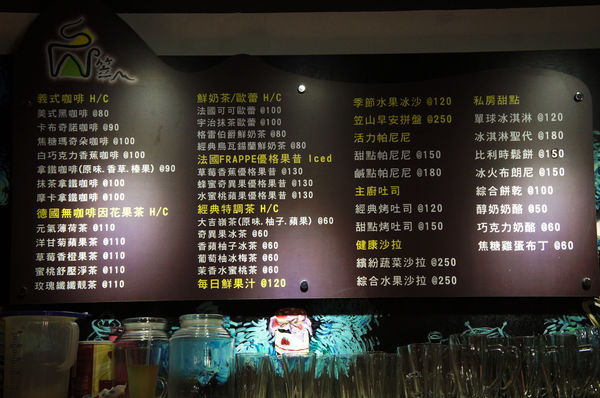 義式咖啡 H/C
美式黑咖啡 @80
卡布奇諾咖啡 @90
焦糖瑪奇朵咖啡 @100
白巧克力香蕉咖啡 @100
拿鐵咖啡(原味.香草.榛果) @90
抹茶拿鐵咖啡 @100
摩卡拿鐵咖啡 @100
德國無咖啡因花果茶 H/C
元氣薄荷茶 @110
洋甘菊蘋果茶 @110
草莓香橙果茶 @110
蜜桃舒壓淨茶 @110
玫瑰纖纖靚茶 @110
鮮奶茶/歐蕾 H/C
法國可可歐蕾 @100
宇治抹茶歐蕾 @100
格雷伯爵鮮奶茶 @80
經典烏瓦錫蘭鮮奶茶 @80
法國FRAPPE優格果昔 Iced
草莓香蕉優格果昔 @130
蜂蜜奇異優格果昔 @130
水蜜桃蘋果優格果昔 @130
經典特調茶 H/C
大吉嶺茶(原味.柚子.蘋果) @60
奇異果冰茶 @60
香蘋柚子冰茶 @60
葡萄柚冰梅茶 @60
茉香水蜜桃茶 @60
每日鮮果汁 @120
季節水果冰沙 @120
笠山早安拼盤 @250
活力帕尼尼
甜點帕尼尼 @150
鹹點帕尼尼 @180
主廚吐司
經典烤吐司 @120
甜點烤吐司 @150
健康沙拉
繽紛蔬菜沙拉 @250
綜合水果沙拉 @250
私房甜點
單球冰淇淋 @120
冰淇淋聖代 @180
比利時鬆餅 @150
冰火布朗尼 @150
綜合餅乾 @100
醇奶奶酪 @50
巧克力奶酪 @60
焦糖雞蛋布丁 @60